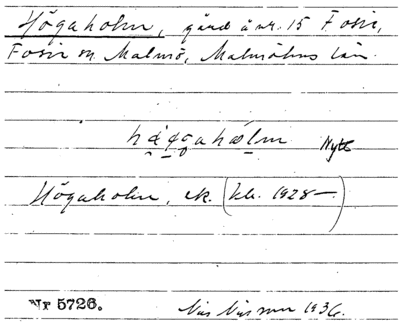 Högaholm, gård å nr. 15 Fosie,
Fosie sn. Malmö, Malmöhus län.
Nytt
Högaholm, ek. (kb. 1928—)
Nr 5726. Nils Nilsson 1936.